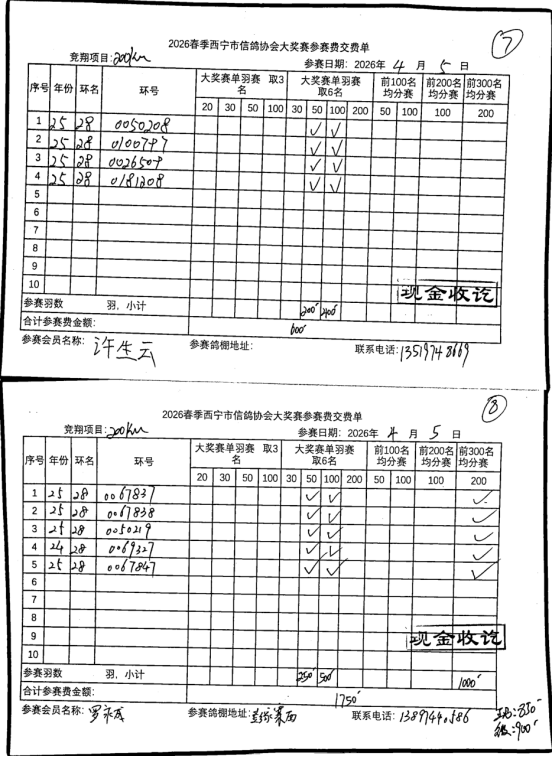 ⑦
2026春季西宁市信鸽协会大奖赛参赛费交费单
竞翔项目:200km 参赛日期: 2026年 4 月 5 日
序号 年份 环名 环号 大奖赛单羽赛 取3名 大奖赛单羽赛 取6名 前100名均分赛 前200名均分赛 前300名均分赛
20 30 50 100 30 50 100 200 50 100 100 200
1 25 28 0050208 ✓ ✓
2 25 28 0100797 ✓ ✓
3 25 28 0026509 ✓ ✓
4 25 28 0181208 ✓ ✓
5
6
7
8
9
10
现金收讫
参赛羽数 羽, 小计 200 400
合计参赛费金额: 600
参赛会员名称: 许生云 参赛鸽棚地址: 联系电话: 13519748669
⑧
2026春季西宁市信鸽协会大奖赛参赛费交费单
竞翔项目:200km 参赛日期: 2026年 4 月 5 日
序号 年份 环名 环号 大奖赛单羽赛 取3名 大奖赛单羽赛 取6名 前100名均分赛 前200名均分赛 前300名均分赛
20 30 50 100 30 50 100 200 50 100 100 200
1 25 28 0067837 ✓ ✓ ✓
2 25 28 0067838 ✓ ✓ ✓
3 25 28 0050219 ✓ ✓ ✓
4 24 28 0069327 ✓ ✓ ✓
5 25 28 0067847 ✓ ✓ ✓
6
7
8
9
10
现金收讫
参赛羽数 羽, 小计 250 500 1000
合计参赛费金额: 1750
参赛会员名称: 罗 参赛鸽棚地址: 联系电话: 13897440586
:850
:900